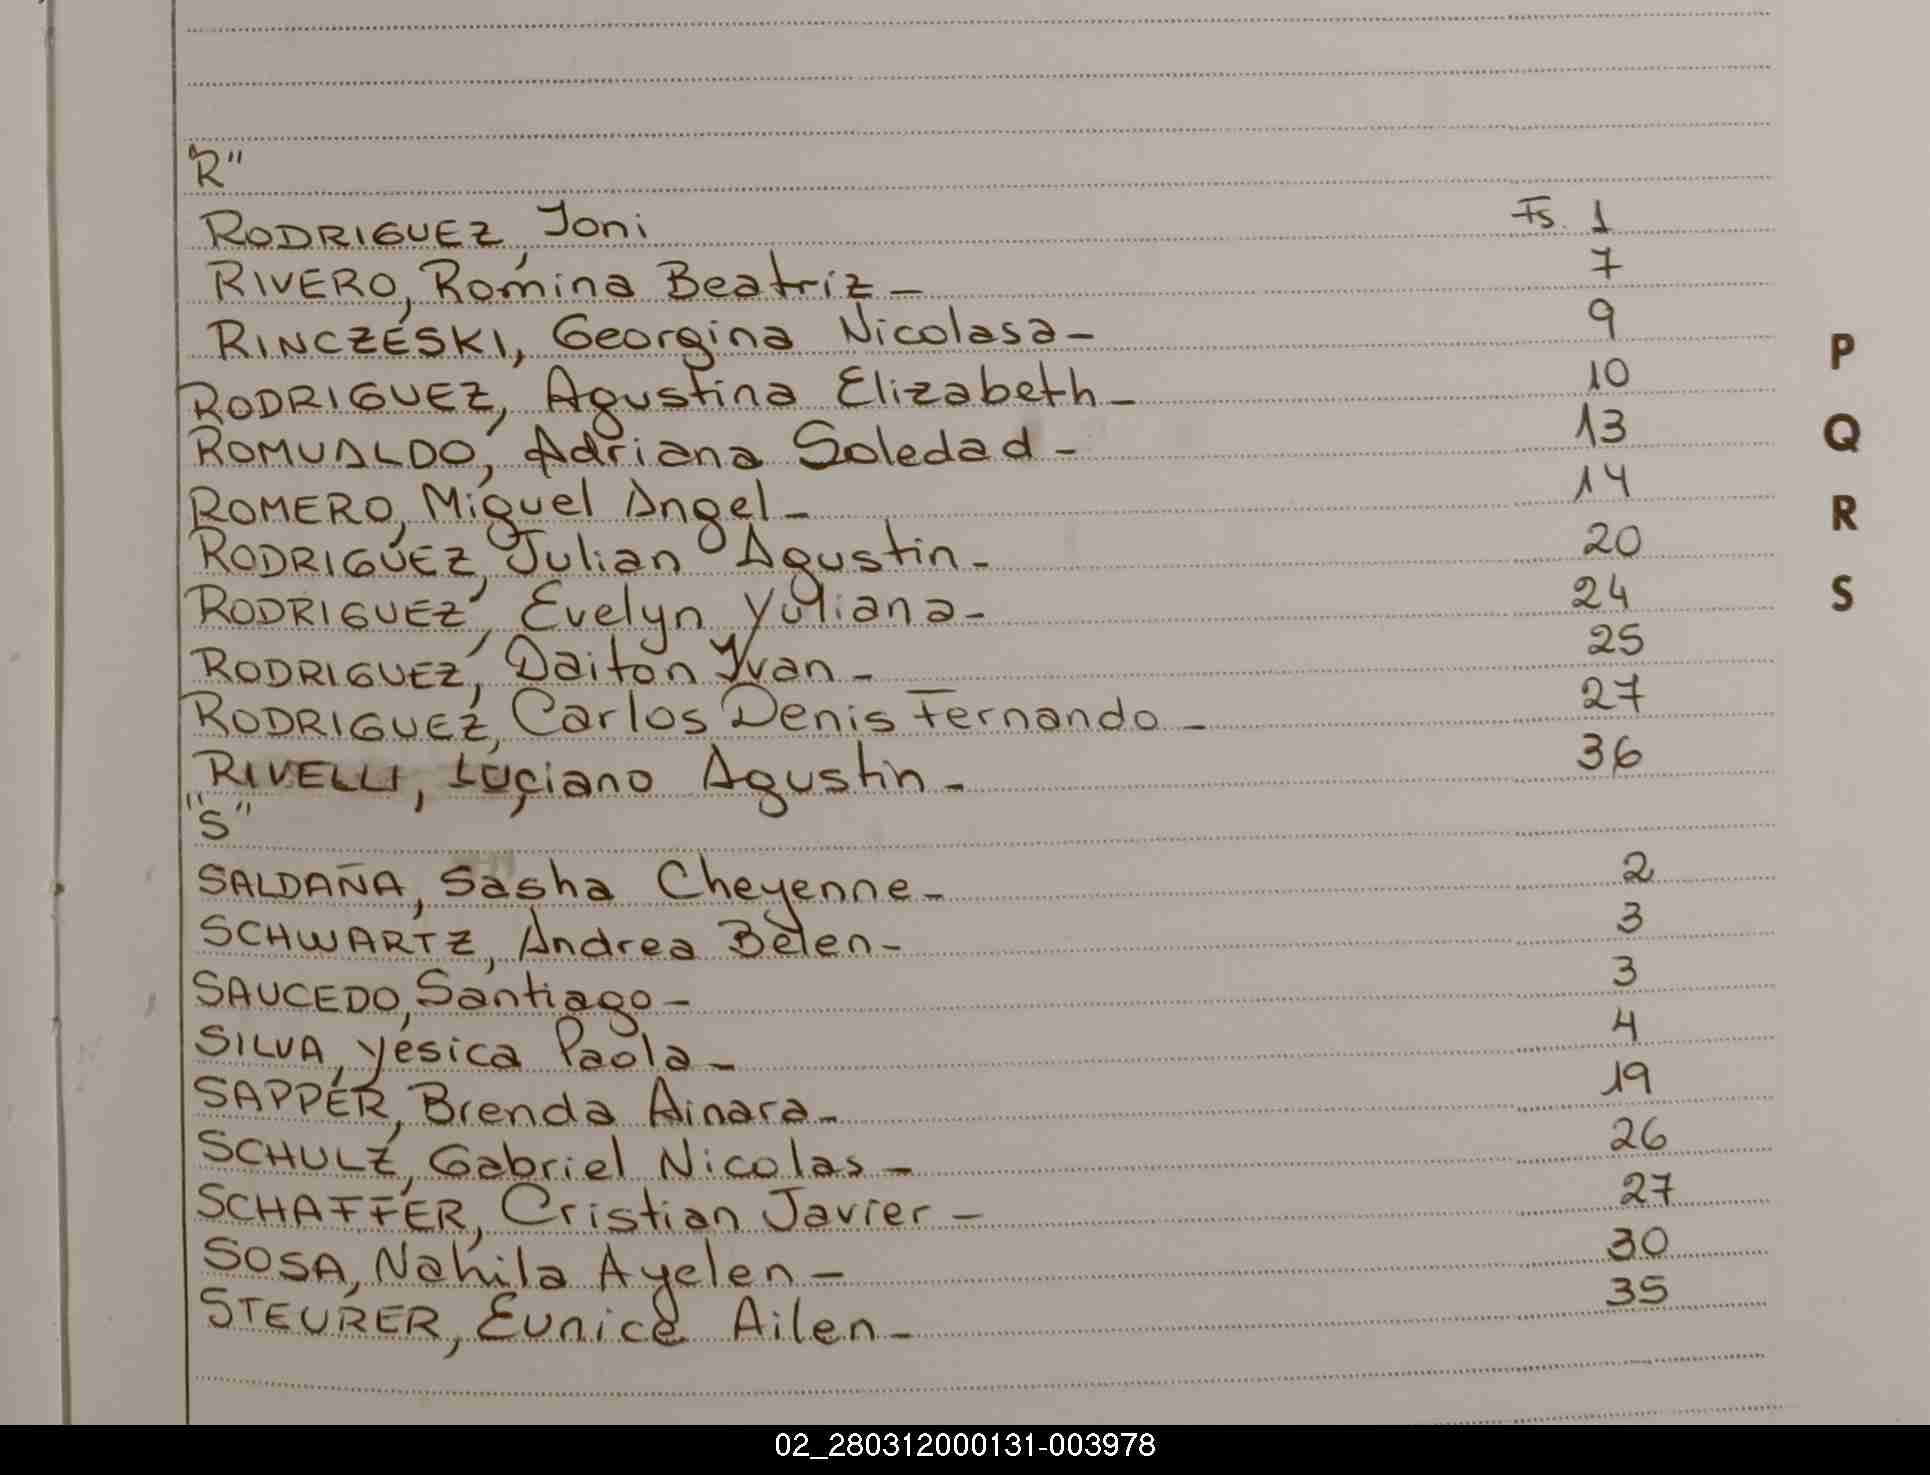 "R"
RODRIGUEZ, Joni Fs. 1
RIVERO, Romina Beatriz - 7
RINCZESKI, Georgina Nicolasa - 9
RODRIGUEZ, Agustina Elizabeth - 10
ROMUALDO, Adriana Soledad - 13
ROMERO, Miguel Angel - 14
RODRIGUEZ, Julian Agustin - 20
RODRIGUEZ, Evelyn Yuliana - 24
RODRIGUEZ, Daiton Yvan - 25
RODRIGUEZ, Carlos Denis Fernando - 27
RIVELLI, Luciano Agustin - 36
"S"
SALDAÑA, Sasha Cheyenne - 2
SCHWARTZ, Andrea Belen - 3
SAUCEDO, Santiago - 3
SILVA, Yesica Paola - 4
SAPPER, Brenda Ainara - 19
SCHULZ, Gabriel Nicolas - 26
SCHAFFER, Cristian Javier - 27
SOSA, Nahila Ayelen - 30
STEURER, Eunice Ailen - 35
P
Q
R
S
02_280312000131-003978